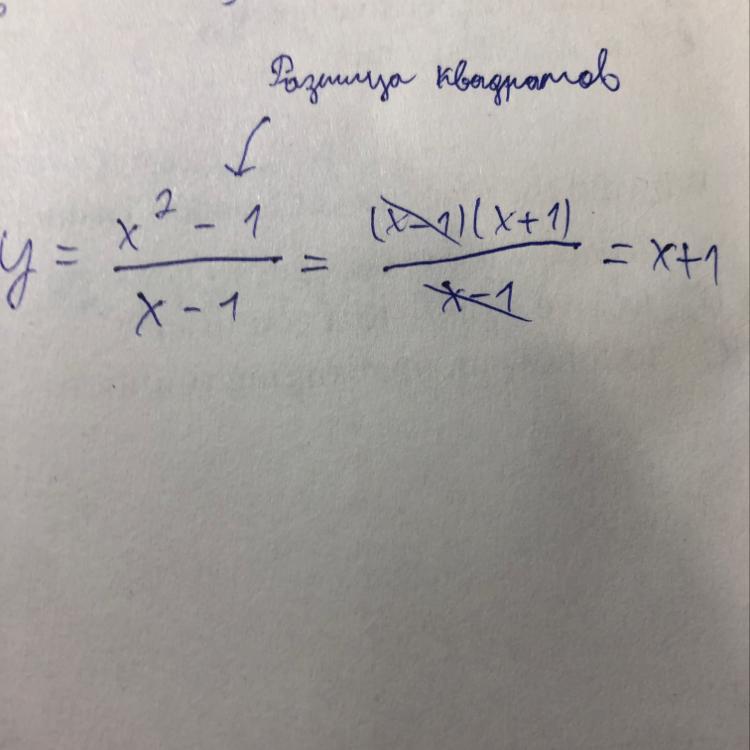 Разница квадратов
y = (x² - 1)/(x - 1) = ((x-1)(x+1))/(x-1) = x+1